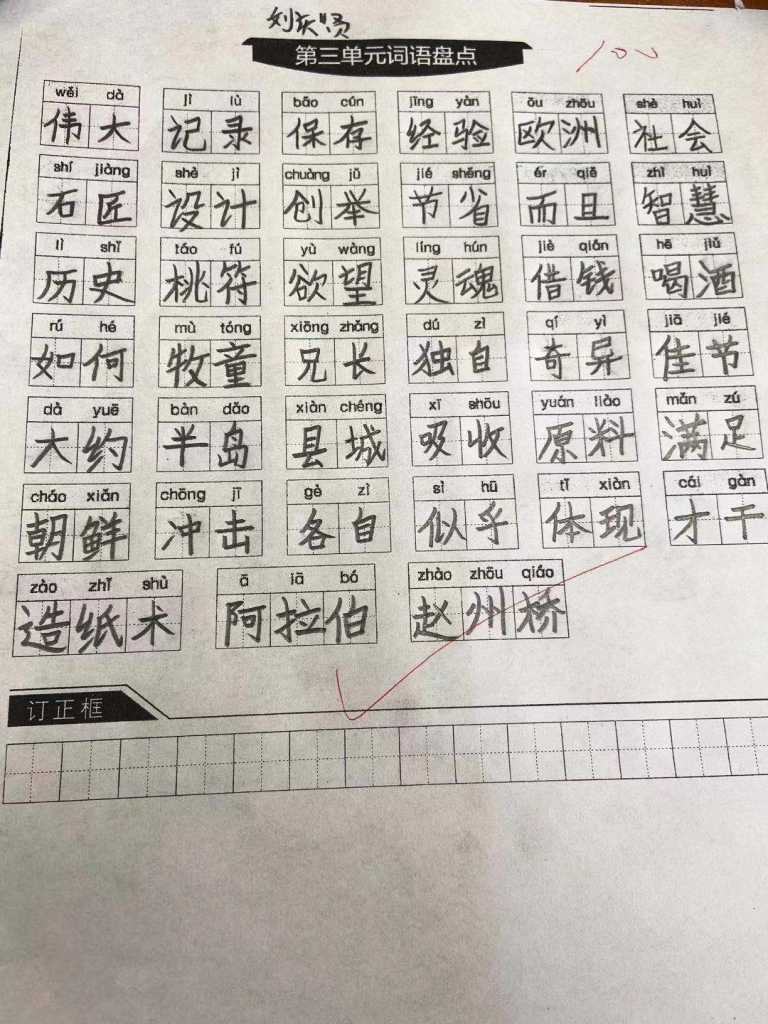 刘庆贤
第三单元词语盘点
100
wěi dà jì lù bǎo cún jīng yàn ōu zhōu shè huì
伟大 记录 保存 经验 欧洲 社会
shí jiàng shè jì chuàng jǔ jié shěng ér qiě zhì huì
石匠 设计 创举 节省 而且 智慧
lì shǐ táo fú yù wàng líng hún jiè qián hē jiǔ
历史 桃符 欲望 灵魂 借钱 喝酒
rú hé mù tóng xiōng zhǎng dú zì qí yì jiā jié
如何 牧童 兄长 独自 奇异 佳节
dà yuē bàn dǎo xiàn chéng xī shōu yuán liào mǎn zú
大约 半岛 县城 吸收 原料 满足
cháo xiǎn chōng jī gè zì sì hū tǐ xiàn cái gàn
朝鲜 冲击 各自 似乎 体现 才干
zào zhǐ shù ā lā bó zhào zhōu qiáo
造纸术 阿拉伯 赵州桥
订正框